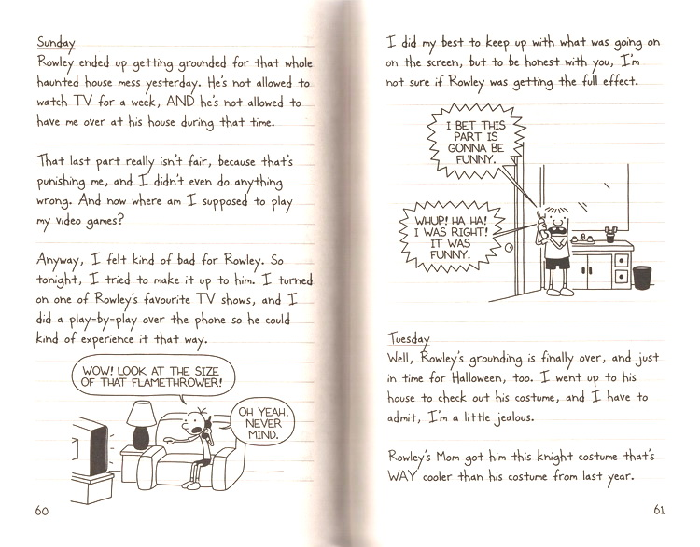 Sunday
Rowley ended up getting grounded for that whole
haunted house mess yesterday. He's not allowed to
watch TV for a week, AND he's not allowed to
have me over at his house during that time.
That last part really isn't fair, because that's
punishing me, and I didn't even do anything
wrong. And now where am I supposed to play
my video games?
Anyway, I felt kind of bad for Rowley. So
tonight, I tried to make it up to him. I turned
on one of Rowley's favourite TV shows, and I
did a play-by-play over the phone so he could
kind of experience it that way.
WOW! LOOK AT THE SIZE
OF THAT FLAMETHROWER!
OH YEAH.
NEVER
MIND.
60
I did my best to keep up with what was going on
on the screen, but to be honest with you, I'm
not sure if Rowley was getting the full effect.
I BET THIS
PART IS
GONNA BE
FUNNY.
WHUP! HA HA!
I WAS RIGHT!
IT WAS
FUNNY.
Tuesday
Well, Rowley's grounding is finally over, and just
in time for Halloween, too. I went up to his
house to check out his costume, and I have to
admit, I'm a little jealous.
Rowley's Mom got him this knight costume that's
WAY cooler than his costume from last year.
61